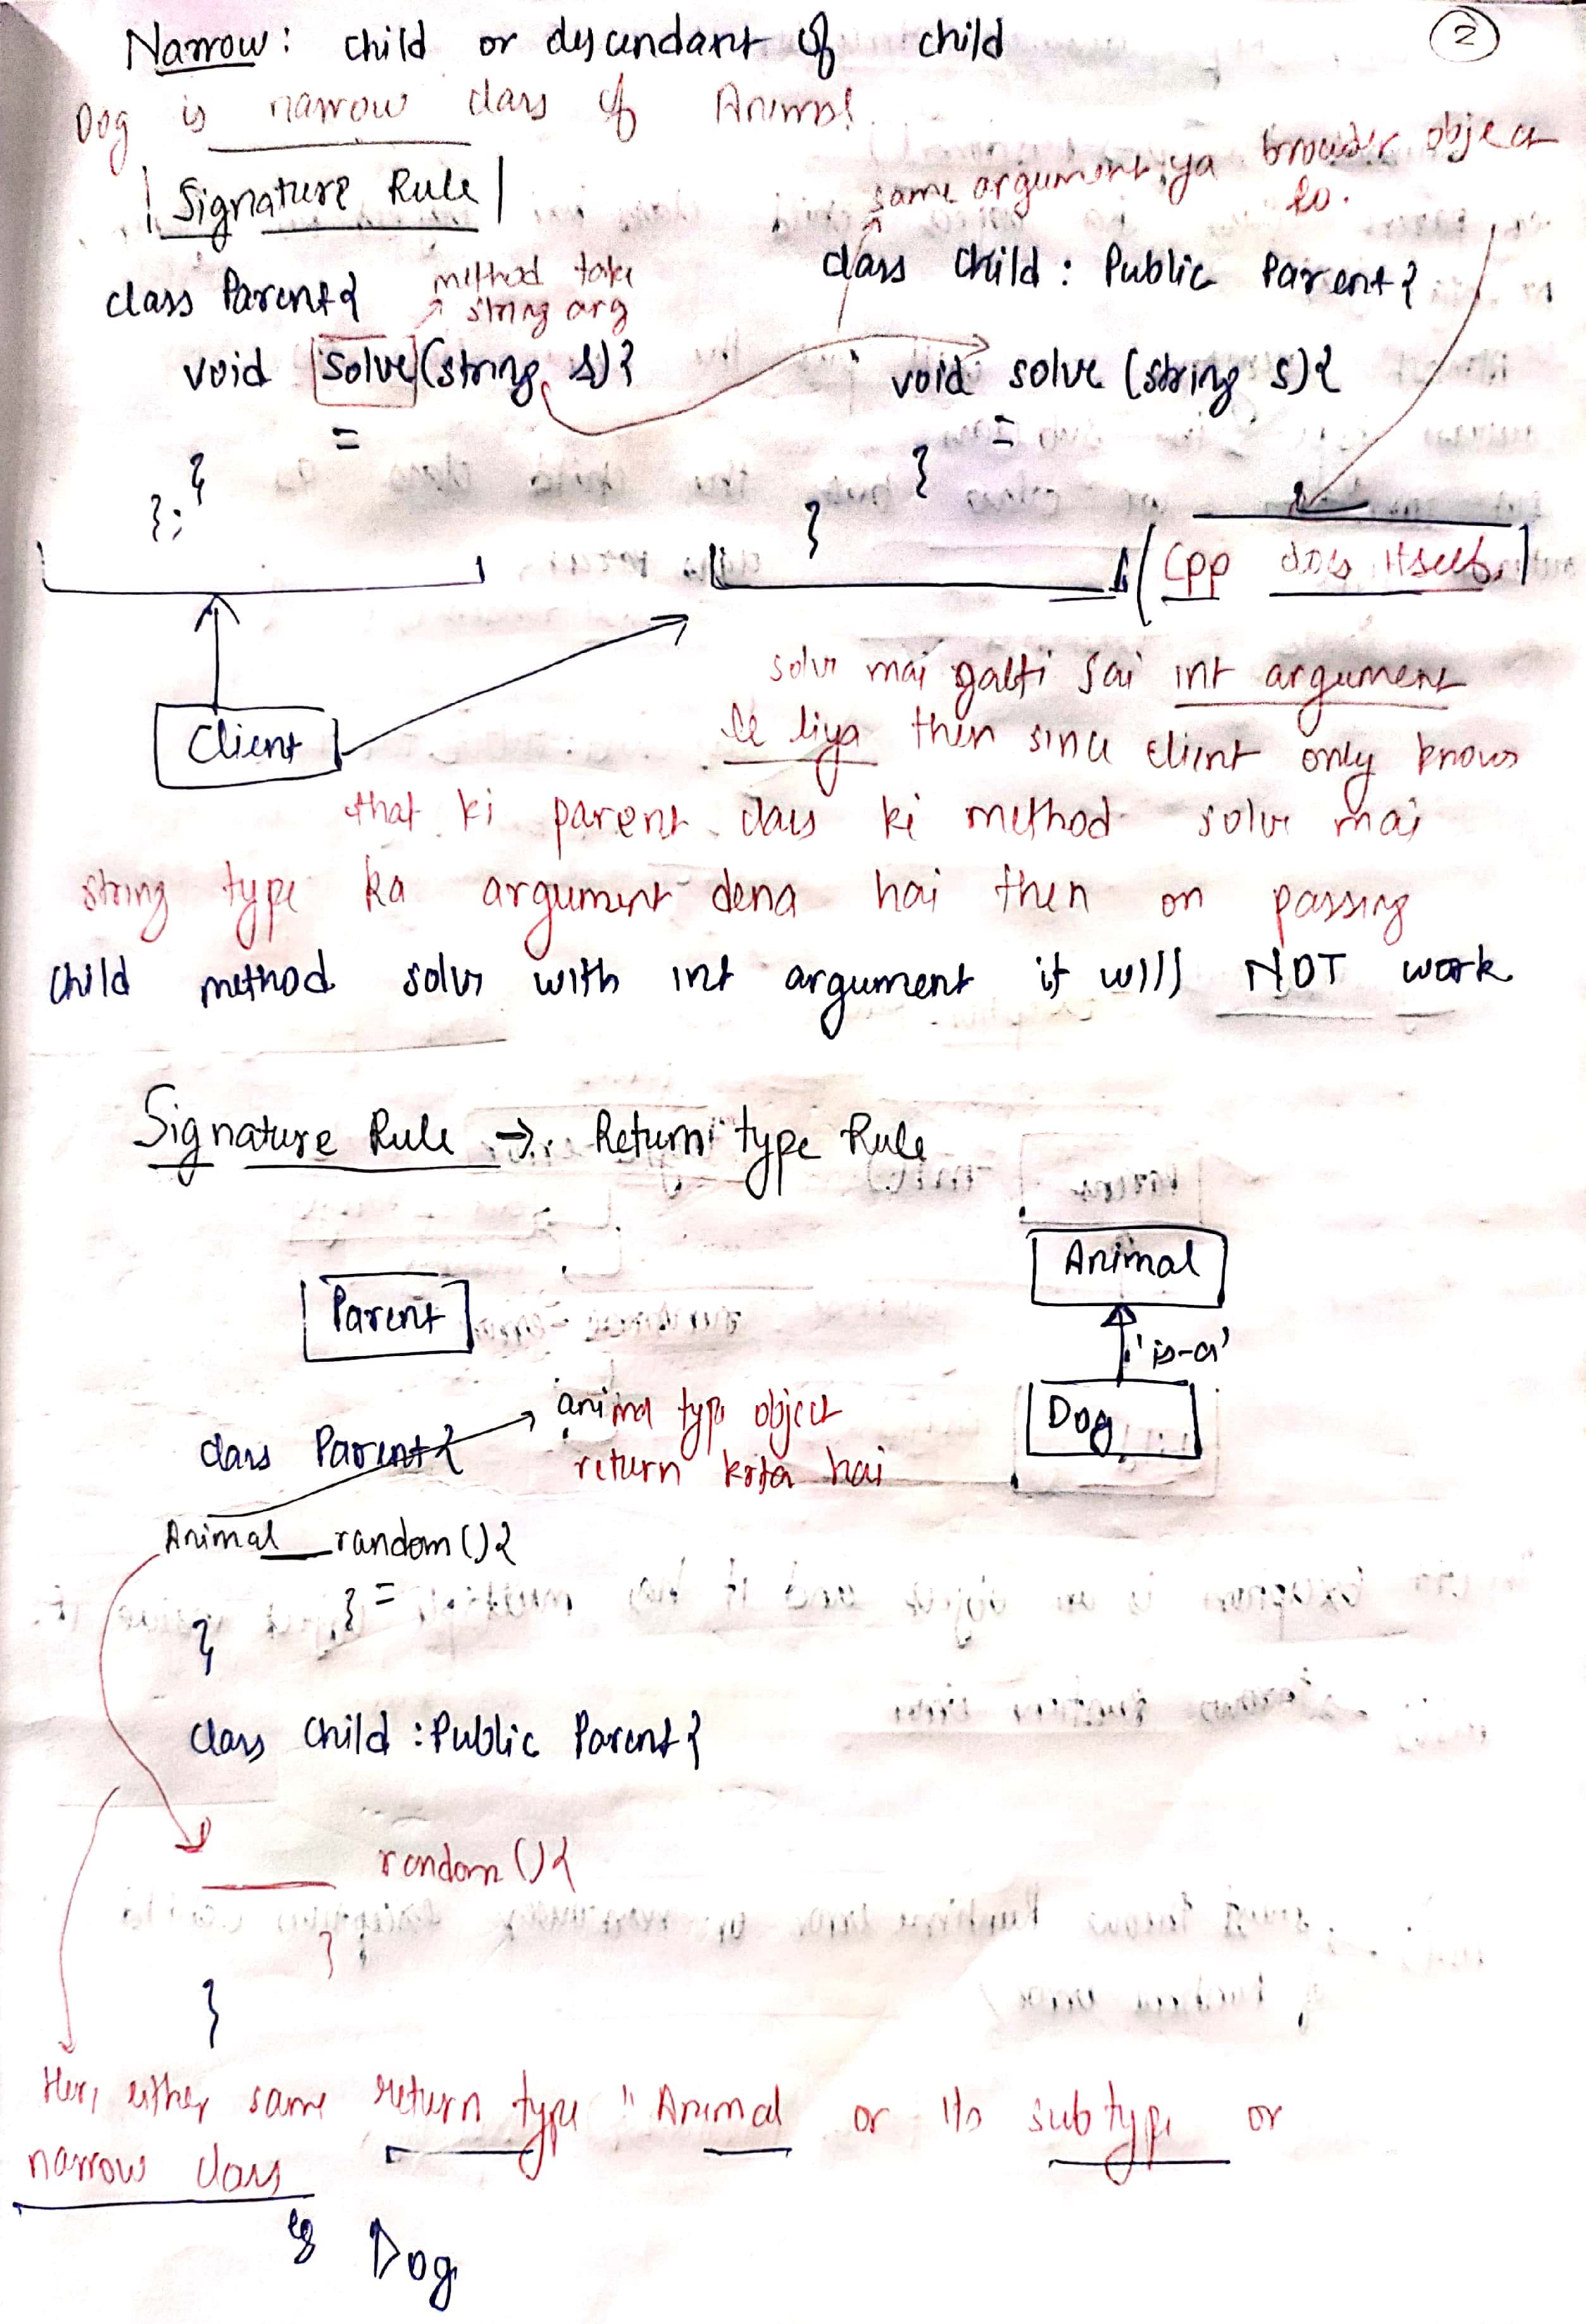 2
Narrow: child or descendant of child
Dog is narrow class of Animal.
Signature Rule
same argument ya broader object
lo.
class Parent{
method take
string arg
void solve(string s){
=
}
};
class Child : Public Parent{
void solve (string s){
=
}
}
(Cpp does itself)
Client
solve mai galti sai int argument
le liya then since client only knows
that ki parent class ki method solve mai
string type ka argument dena hai then on passing
child method solve with int argument it will NOT work
Signature Rule → Return type Rule
Parent
Animal
'is-a'
Dog
class Parent{
animal type object
return krta hai
Animal random(){
} =
}
class Child : Public Parent{
____ random(){
}
}
Here, either same return type "Animal or its subtype or
narrow class
eg Dog